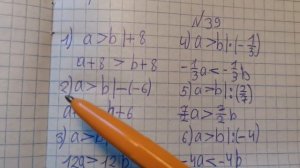 №39
1) a>b |+8
a+8 > b+8
2) a>b |-(-6)
b+6
3) a>b
12a > 12b
4) a>b |:(-1/3)
-1/3a < -1/3b
5) a>b |:(2/7)
7/2a > 7/2b
6) a>b |:(-4)
-4a < -4b